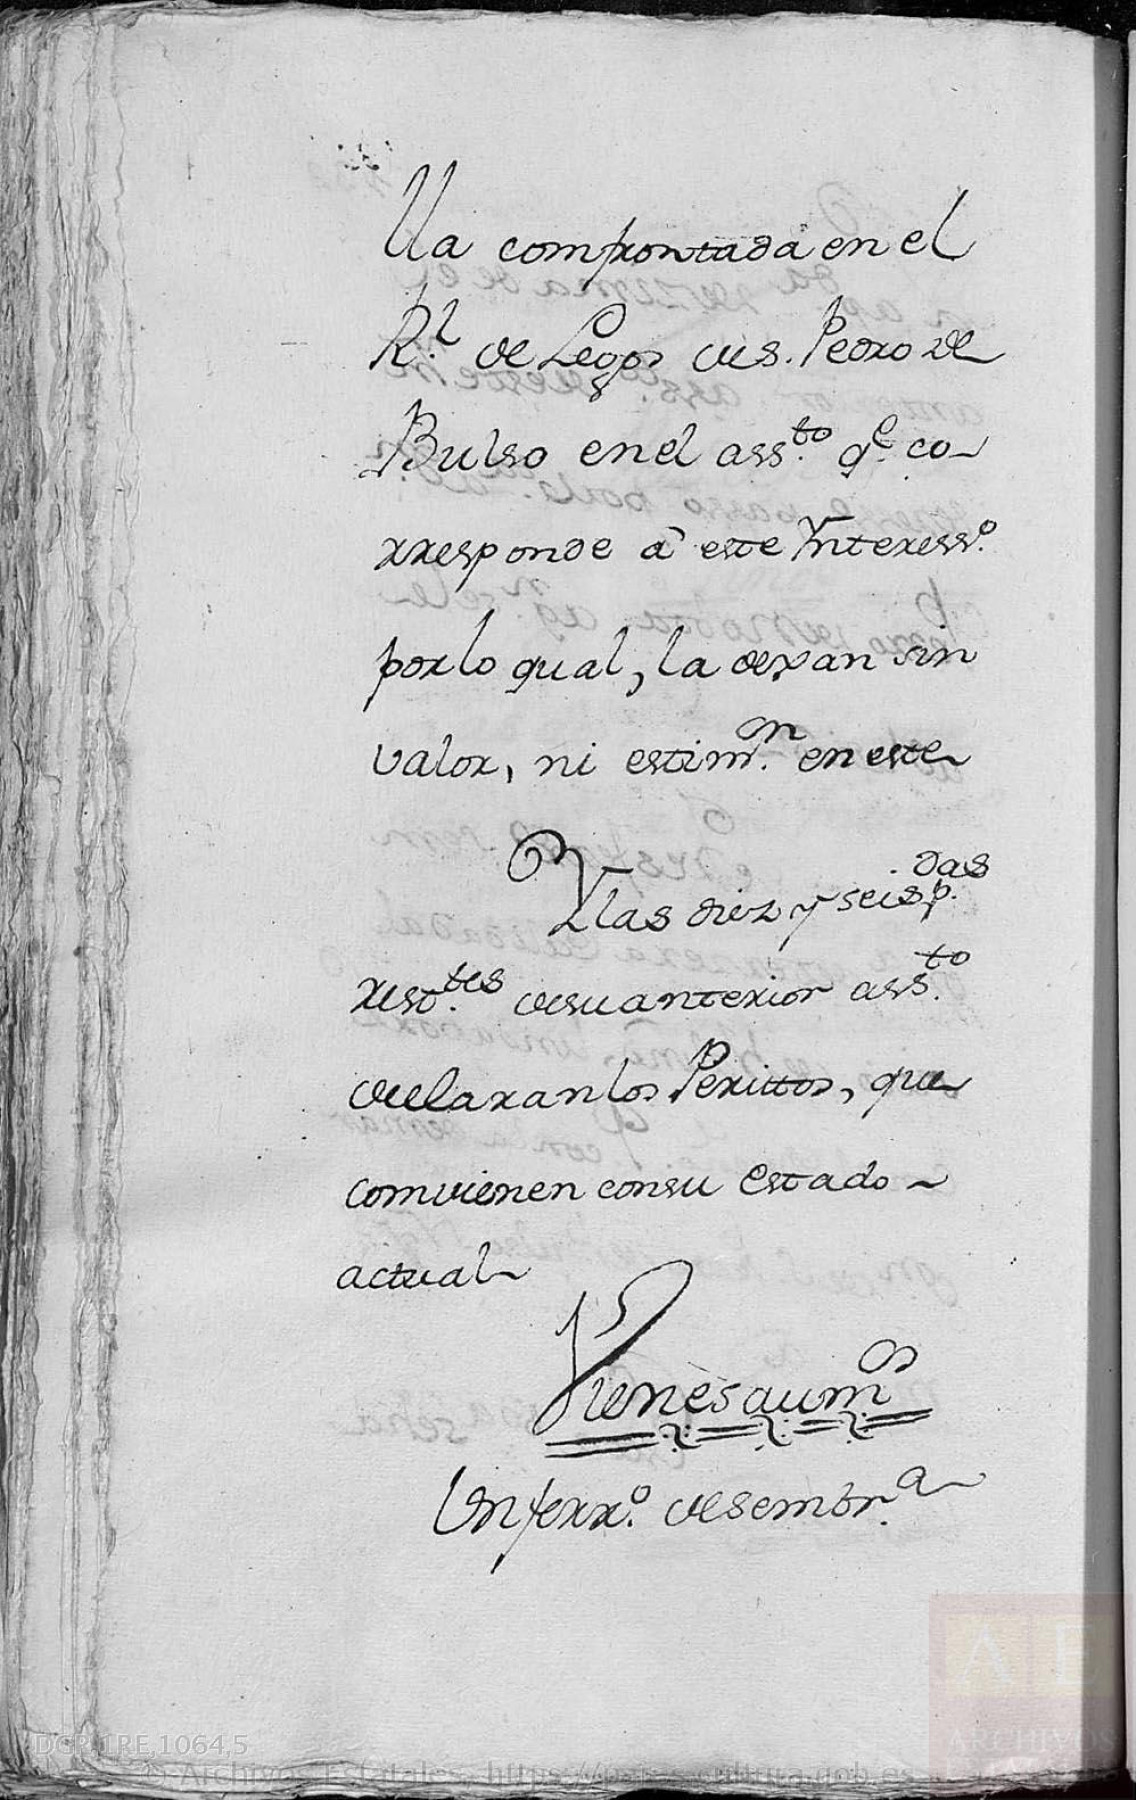 Va comprontada en el
R.l de Legos de S. Pedro de
Bulso en el ass.to q.e co-
rresponde â este Ynteress.o
por lo qual, la dexan sin
valor, ni estim.on en este
Y las diez y seis p.das
rest.tes de su anterior ass.to
declaran los Perittos, que
comvienen con su estado
actual
Vienes aum.os
Un ferr.o de sembr.a
DGR,1RE,1064,5
© Archivos Estatales, https://pares.cultura.gob.es
AE
ARCHIVOS